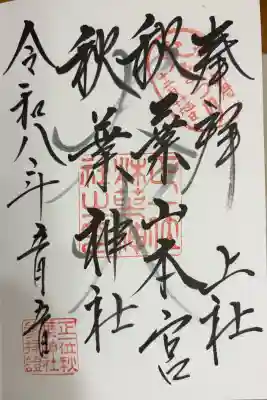 奉拝 上社
秋葉山本宮
秋葉神社
令和八年五月五日